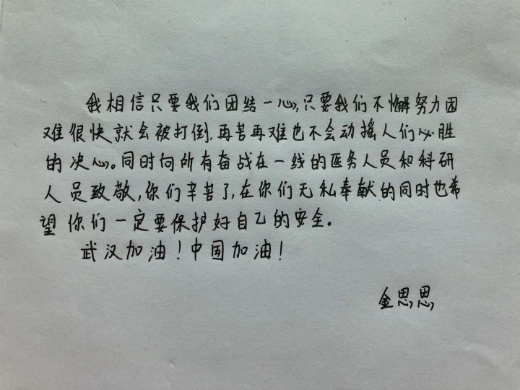 我相信只要我们团结一心,只要我们不懈努力困
难很快就会被打倒.再苦再难也不会动摇人们必胜
的决心。同时向所有奋战在一线的医务人员和科研
人员致敬,你们辛苦了,在你们无私奉献的同时也希
望你们一定要保护好自己的安全。
武汉加油!中国加油!
金思思